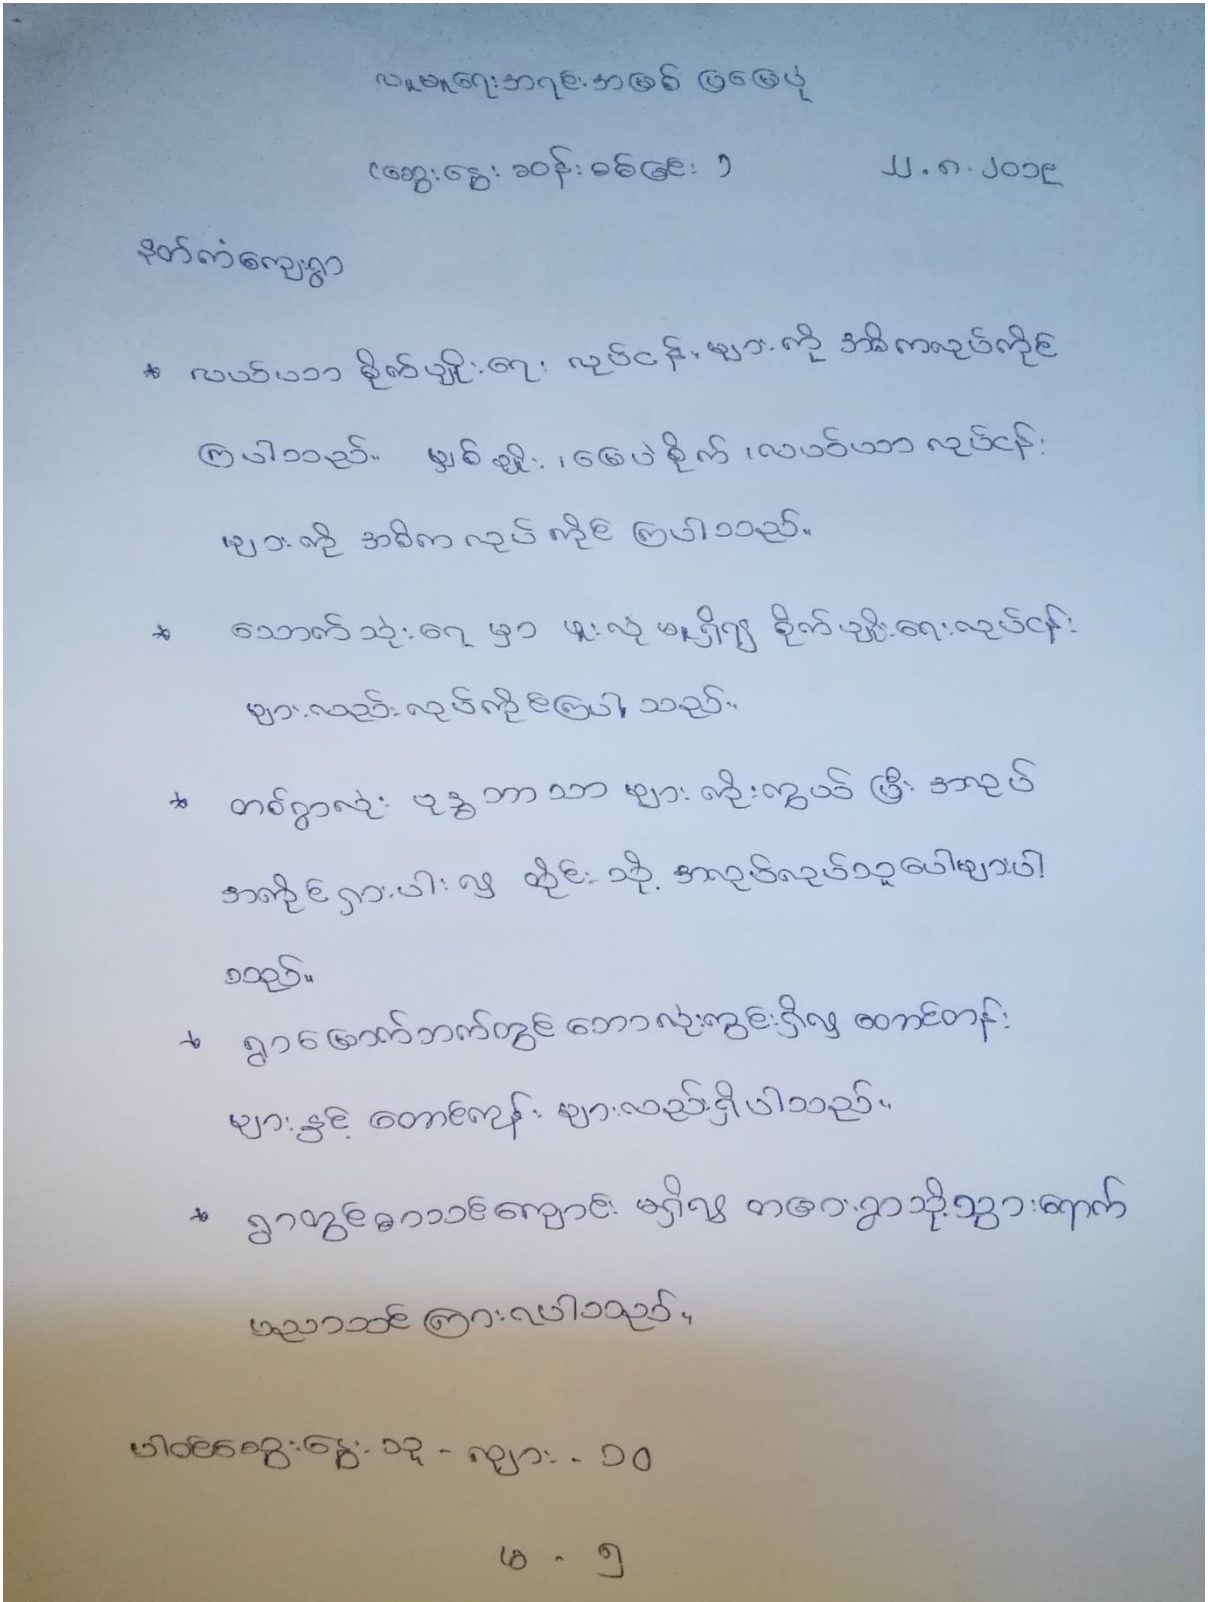 လူမှုရေးအရင်းအမြစ် ပြမြေပုံ
(ဆွေးနွေး ဆန်းစစ်ခြင်း ) ၂၂.၈.၂၀၁၉
နတ်ကံကျေးရွာ
* လယ်ယာ စိုက်ပျိုးရေး လုပ်ငန်းများကို အဓိကလုပ်ကိုင်
ကြပါသည်။ မျှစ်ချိုး၊ မြေပဲစိုက်၊ လယ်ယာ လုပ်ငန်း
များကို အဓိက လုပ်ကိုင် ကြပါသည်။
* သောက်သုံးရေ မှာ ဖူလုံမှုရှိ၍ စိုက်ပျိုးရေးလုပ်ငန်း
များလည်း လုပ်ကိုင်ကြပါသည်။
* တစ်ရွာလုံး ဗုဒ္ဓဘာသာ များ ကိုးကွယ် ပြီး အလုပ်
အကိုင်ရှားပါး၍ ထိုင်းသို့ အလုပ်လုပ်သူပေါများပါ
သည်။
* ရွာမြောက်ဘက်တွင် ဘောလုံးကွင်းရှိ၍ တောင်တန်း
များနှင့် တောင်ကုန်း များလည်းရှိပါသည်။
* ရွာတွင်စာသင်ကျောင်း မရှိ၍ တခြားရွာသို့သွားရောက်
ပညာသင် ကြားရပါသည်။
ပါဝင်ဆွေးနွေးသူ - ကျား - ၁၀
မ - ၅